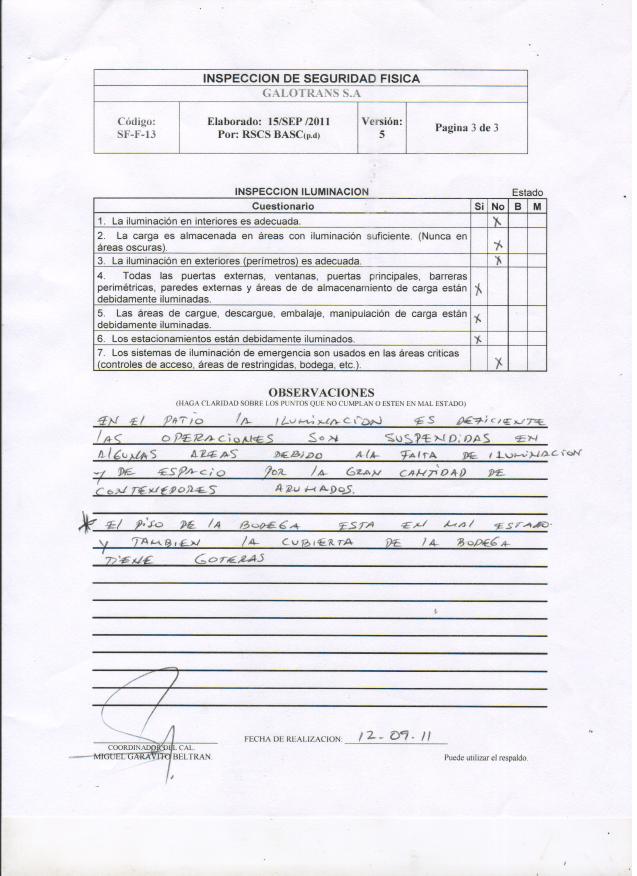 INSPECCION DE SEGURIDAD FISICA
GALOTRANS S.A
Código:
SF-F-13
Elaborado: 15/SEP /2011
Por: RSCS BASC(p.d)
Versión:
5
Pagina 3 de 3
INSPECCION ILUMINACION Estado
Cuestionario Si No B M
1. La iluminación en interiores es adecuada. X
2. La carga es almacenada en áreas con iluminación suficiente. (Nunca en
áreas oscuras). X
3. La iluminación en exteriores (perímetro) es adecuada. X
4. Todas las puertas externas, ventanas, puertas principales, barreras
perimétricas, paredes externas y áreas de de almacenamiento de carga están
debidamente iluminadas. X
5. Las áreas de cargue, descargue, embalaje, manipulación de carga están
debidamente iluminadas. X
6. Los estacionamientos están debidamente iluminados. X
7. Los sistemas de iluminación de emergencia son usados en las áreas criticas
(controles de acceso, áreas de restringidas, bodega, etc.). X
OBSERVACIONES
(HAGA CLARIDAD SOBRE LOS PUNTOS QUE NO CUMPLAN O ESTEN EN MAL ESTADO)
EN El PATIO lA ILUMINACION ES DEFICIENTE
lAS OPERACIONES SON SUSPENDIDAS EN
AlGUNAS AREAS DEBIDO AlA FAlTA DE ILUMINACION
Y DE ESPACIO POR lA GRAN CANTIDAD DE
CONTENEDORES ARUMADOS.
* El PISO DE lA BODEGA ESTA EN MAl ESTADO.
Y TAMBIEN lA CUBIERTA DE lA BODEGA
TIENE GOTERAS
FECHA DE REALIZACION: 12-09-11
COORDINADOR DEL CAL.
MIGUEL GARAVITO BELTRAN.
Puede utilizar el respaldo.